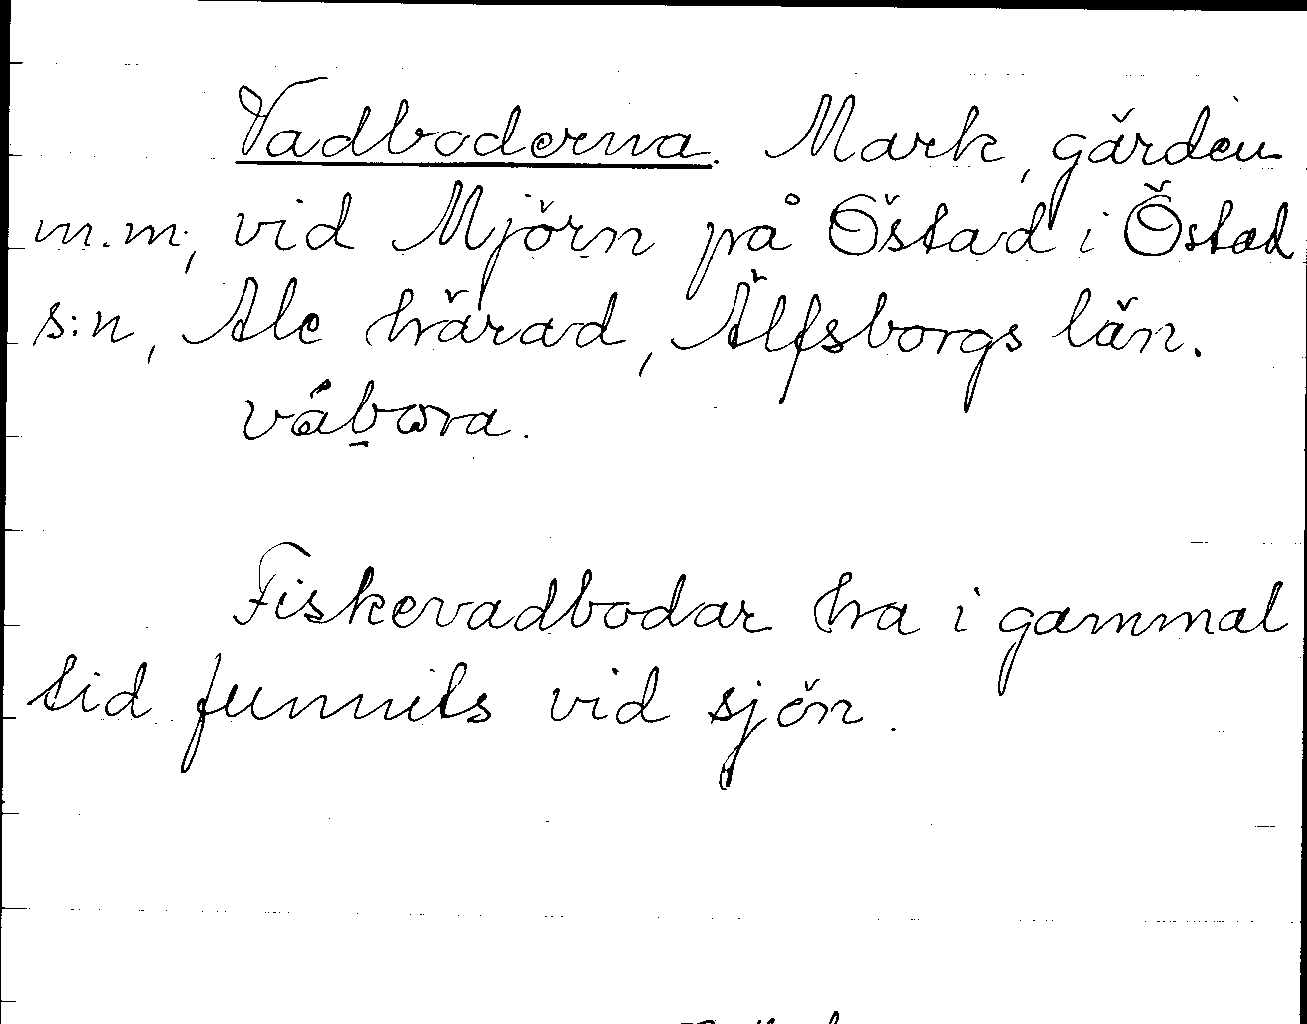 Vadboderna. Mark, gärden
m.m., vid Mjörn på Östad i Östad
s:n, Ale härad, Älfsborgs län.
Fiskevadbodar ha i gammal
tid funnits vid sjön.